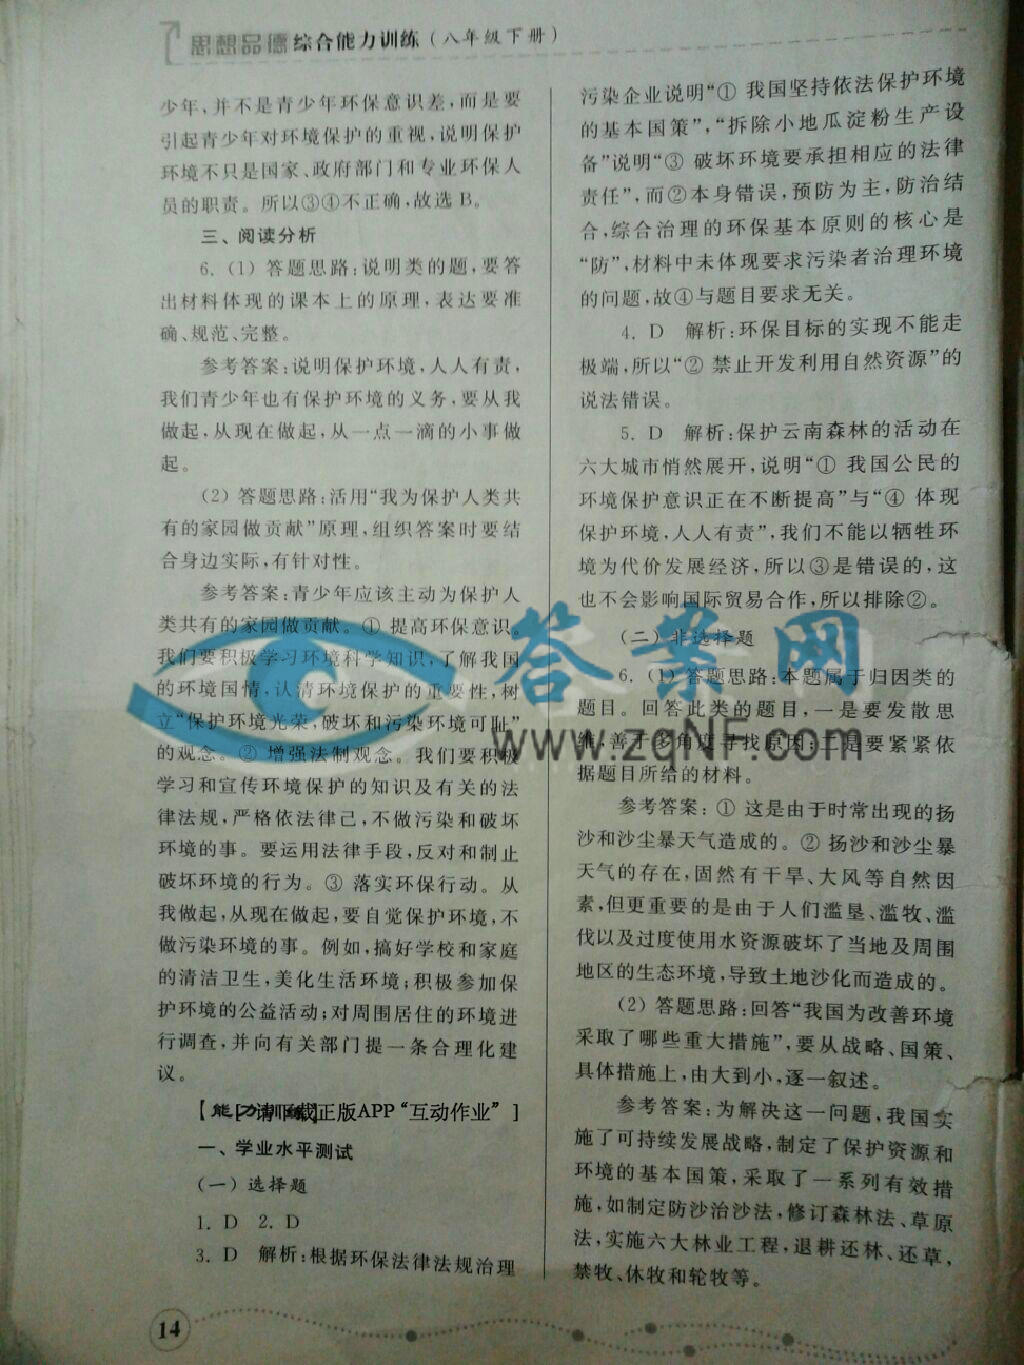 思想品德综合能力训练(八年级下册)
少年、并不是青少年环保意识差,而是要
引起青少年对环境保护的重视,说明保护
环境不只是国家、政府部门和专业环保人
员的职责。所以③④不正确,故选B。
三、阅读分析
6. (1) 答题思路:说明类的题,要答
出材料体现的课本上的原理,表达要准
确、规范、完整。
参考答案:说明保护环境,人人有责,
我们青少年也有保护环境的义务,要从我
做起,从现在做起,从一点一滴的小事做
起。
(2) 答题思路:活用“我为保护人类共
有的家园做贡献”原理,组织答案时要结
合身边实际,有针对性。
参考答案:青少年应该主动为保护人
类共有的家园做贡献。① 提高环保意识。
我们要积极学习环境科学知识,了解我国
的环境国情,认清环境保护的重要性,树
立“保护环境光荣,破坏和污染环境可耻”
的观念。② 增强法制观念。我们要积极
学习和宣传环境保护的知识及有关的法
律法规,严格依法律己,不做污染和破坏
环境的事。要运用法律手段,反对和制止
破坏环境的行为。③ 落实环保行动。从
我做起,从现在做起,要自觉保护环境,不
做污染环境的事。例如,搞好学校和家庭
的清洁卫生,美化生活环境;积极参加保
护环境的公益活动;对周围居住的环境进
行调查,并向有关部门提一条合理化建
议。
请下载正版APP“互动作业”]
一、学业水平测试
(一) 选择题
1. D 2. D
3. D 解析:根据环保法律法规治理
14
污染企业说明“① 我国坚持依法保护环境
的基本国策”,“拆除小地瓜淀粉生产设
备”说明“③ 破坏环境要承担相应的法律
责任”,而②本身错误,预防为主,防治结
合,综合治理的环保基本原则的核心是
“防”,材料中未体现要求污染者治理环境
的问题,故④与题目要求无关。
4. D 解析:环保目标的实现不能走
极端,所以“② 禁止开发利用自然资源”的
说法错误。
5. D 解析:保护云南森林的活动在
六大城市悄然展开,说明“① 我国公民的
环境保护意识正在不断提高”与“④ 体现
保护环境,人人有责”,我们不能以牺牲环
境为代价发展经济,所以③是错误的,这
也不会影响国际贸易合作,所以排除②。
(二) 非选择题
6. (1) 答题思路:本题属于归因类的
题目。回答此类的题目,一是要发散思
维,善于多角度寻找原因;二是要紧紧依
据题目所给的材料。
参考答案:① 这是由于时常出现的扬
沙和沙尘暴天气造成的。② 扬沙和沙尘暴
天气的存在,固然有干旱、大风等自然因
素,但更重要的是由于人们滥垦、滥牧、滥
伐以及过度使用水资源破坏了当地及周围
地区的生态环境,导致土地沙化而造成的。
(2) 答题思路:回答“我国为改善环境
采取了哪些重大措施”,要从战略、国策、
具体措施上,由大到小,逐一叙述。
参考答案:为解决这一问题,我国实
施了可持续发展战略,制定了保护资源和
环境的基本国策,采取了一系列有效措
施,如制定防沙治沙法,修订森林法、草原
法,实施六大林业工程,退耕还林、还草,
禁牧、休牧和轮牧等。
答案网
www.zqNF.com